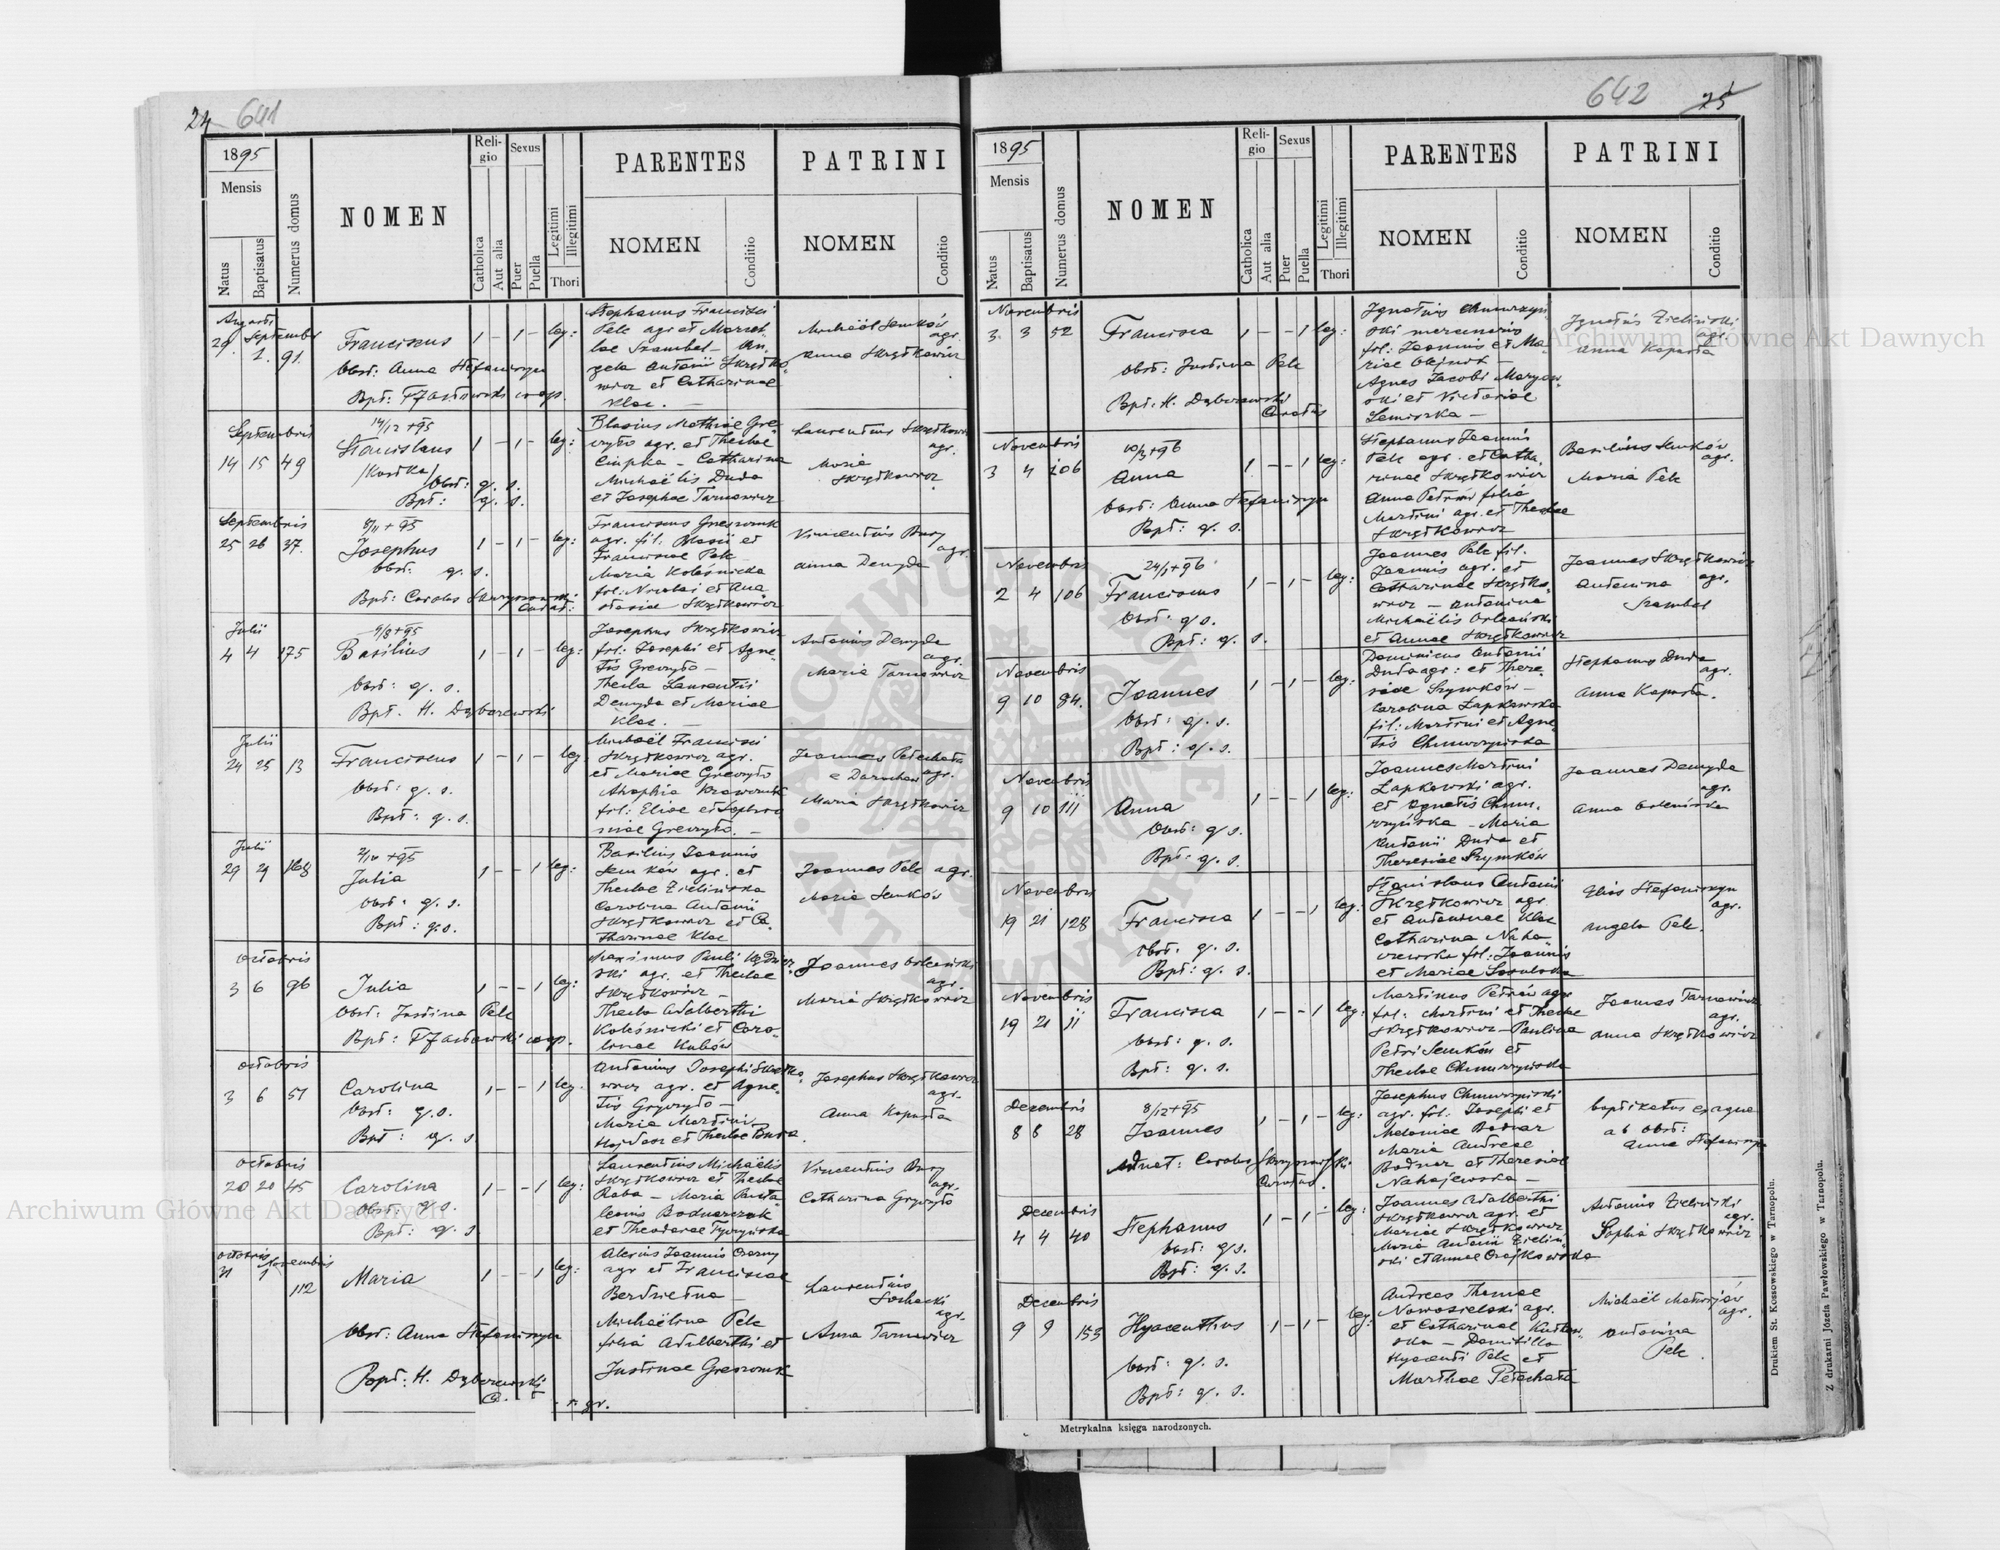 24 641
1895
Mensis
Natus
Baptisatus
Numerus domus
NOMEN
Religio
Catholica
Aut alia
Sexus
Puer
Puella
Legitimi
Illegitimi
Thori
PARENTES
NOMEN
Conditio
PATRINI
NOMEN
Conditio
Augusti Septembr
29 1. 91.
Franciscus
1 - 1 - leg:
Obst: Anna Stefaniszyn
Stephanus Francisci
Pelc agr et Marcel
lae Szambel - An
gela Antonii Skrętko
wicz et Catharinae
Klac. -
Michaël Semków
agr.
Anna Skrętkowicz
Septembris
14 15 49
14/12 +95
Stanislaus
/Kostka/
Obst: q. s.
Bpt: q. s.
1 - 1 - leg:
Blasius Mathiae Gre
czyło agr. et Theclae
Ciupka - Catharina
Michaëlis Duda
et Josephae Tarnawicz
Laurentius Skrętkowicz
agr.
Maria
Skrętkowicz
Septembris
25 26 37.
8/11 + 95
Josephus
Obst. q. s.
1 - 1 - leg:
Franciscus
agr. fil. Blasii et
Franciscae Pelc -
Maria Koleśnicka
fil: Nicolai et Ana
stasiae Skrętkowicz
Vincentius Bury
agr.
Anna Demyda
Julii
4 4 175
9/8 +95
Basilius
Obst: q. s.
Bpt. H. Dąbczewski
1 - 1 - leg:
Josephus Skrętkowicz
fil: Josephi et Agne
tis Greczyło -
Thecla Laurentii
Demyda et Mariae
Klac. -
Antonius Demyda
agr.
Maria Tarnawicz
Julii
24 25 13
Franciscus
Obst: q. s.
Bpt: q. s.
1 - 1 - leg
Michaël Francisci
Skrętkowicz agr.
et Mariae Greczyło
fil: Eliae et
Greczyło. -
Joannes
agr.
Maria Skrętkowicz
Julii
29 29 168
+95
Julia
Obst: q. s.
Bpt: q. s.
1 - - 1 leg:
Basilius Joannis
Semków agr. et
Theclae Zielińska
Carolina Antonii
Skrętkowicz et Ca
tharinae Klac
Joannes Pelc agr.
Maria Semków
Octobris
3 6 96
Julia
Obst: Justina Pelc
1 - - 1 leg:
Maximus Pauli
agr. et Theclae
Skrętkowicz -
Thecla Adalberthi
Koleśnicki et Caro
linae Kubów
Joannes Orleański
agr.
Maria Skrętkowicz
Octobris
3 6 51
Carolina
Obst: q. s.
Bpt: q. s.
1 - - 1 leg
Antonius Josephi Skrętko
wicz agr. et Agne
tis Gryczyło -
Maria Martini
et Theclae Duda
Josephus Skrętkowicz
agr.
Anna Kaparta
Octobris
20 20 45
Carolina
Obst: q. s.
Bpt: q. s.
1 - - 1 leg:
Laurentius Michaëlis
Skrętkowicz et Theclae
Raba - Maria Panta
leonis Bodnarczuk
et Theodorae
Vincentius Bury
agr.
Catharina Gryczyło
Octobris Novembris
31 1 112
Maria
1 - - 1 leg:
Obst: Anna Stefaniszyn
Bapt: H. Dąbczewski
Alexius Joannis Czarny
agr et Franciscae
Berdzietna -
Michaëlina Pelc
filia Adalberthi et
Justinae
Laurentius
Sochacki
agr.
Anna Tarnawicz
642 25
1895
Mensis
Natus
Baptisatus
Numerus domus
NOMEN
Religio
Catholica
Aut alia
Sexus
Puer
Puella
Legitimi
Illegitimi
Thori
PARENTES
NOMEN
Conditio
PATRINI
NOMEN
Conditio
Novembris
3. 3 52
Francisca
1 - - 1 leg:
Obst: Justina Pelc
Bpt. H. Dąbczewski
Curatus
Ignatius Chmurzyń
ski mercenaris
fil: Joannis et Ma
riae Olejnik -
Agnes Jacobi Maryow
ski et Victoriae
Semiszka -
Ignatius Zieliński
agr.
Anna Kaparta
Novembris
3 4 106
10/3 +96
Anna
Obst: Anna Stefaniszyn
Bpt: q. s.
1 - - 1 leg:
Stephanus Joannis
Pelc agr. et Catha
rinae Skrętkowicz
Anna Petrów filia
Martini agr. et Theclae
Skrętkowicz
Basilius Semków
agr.
Maria Pelc
Novembris
2 4 106
24/1 +96
Franciscus
Obst: q. s.
Bpt: q. s.
1 - 1 - leg:
Joannes Pelc fil.
Joannis agr. et
Catharinae Skrętko
wicz - Antonina
Michaëlis Orleański
et Annae Skrętkowicz
Joannes Skrętkowicz
Antonina agr.
Szambel
Novembris
9 10 84.
Joannes
Obst: q. s.
Bpt: q. s.
1 - 1 - leg:
Dominicus Antonii
Duda agr: et There
siae Szymków -
Carolina Łapkowska
fil: Martini et Agne
tis Chmurzyńska
Stephanus Duda
agr.
Anna Kaparta.
Novembris
9 10 111
Anna
Obst: q. s.
Bpt: q. s.
1 - - 1 leg:
Joannes Martini
Łapkowski agr.
et Agnetis Chmu
rzyńska - Maria
Antonii Duda et
Theresiae Szymków
Joannes Demyda
agr.
Anna Orleańska
Novembris
19 21 128
Francisca
Obst. q. s.
Bpt: q. s.
1 - - 1 leg:
Stanislaus Antonii
Skrętkowicz agr.
et Antoninae Klac
Catharina Naha
czewska fil: Joannis
et Mariae
Elias Stefaniszyn
agr.
Angela Pelc.
Novembris
19 21 11
Francisca
Obst: q. s.
Bpt: q. s.
1 - - 1 leg:
Martinus Petrów agr
fil: Martini et Theclae
Skrętkowicz - Paulina
Petri Semków et
Theclae Chmurzyńska
Joannes Tarnawicz
agr.
Anna Skrętkowicz
Decembris
8 8 28
8/12 +95
Joannes
1 - 1 - leg:
Josephus Chmurzyński
agr. fil: Josephi et
Melaniae Bodnar
Maria Andreae
Bodnar et Theresiae
Nahajewska -
baptisatus ex aqua
ab obst:
Anna Stefaniszyn
Decembris
4 4 40
Stephanus
Obst: q. s.
Bpt: q. s.
1 - 1 - leg:
Joannes Adalberthi
Skrętkowicz agr. et
Mariae Skrętkowicz
Maria Antonii Zieliń
ski et Annae
Antonius Zieliński
agr.
Sophia Skrętkowicz
Decembris
9 9 153
Hyacenthus
Obst: q. s.
Bpt: q. s.
1 - 1 - leg:
Andreas Thomae
Nowosielski agr.
et Catharinae
ska - Domicilla
Hyacenti Pelc et
Marthae Petachata
Michaël
agr.
Antonina
Pelc.
Metrykalna księga narodzonych.
Drukiem St. Kossowskiego w Tarnopolu.
Z drukarni Józefa Pawłowskiego w Tarnopolu.
Archiwum Główne Akt Dawnych
Archiwum Główne Akt Dawnych